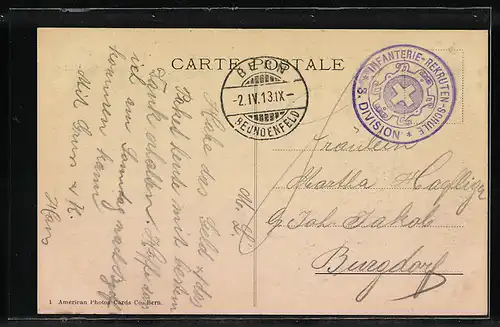 CARTE POSTALE
BERN
-2.IV.13.IX-
BEUNDENFELD
INFANTERIE-REKRUTEN-SCHULE
3. DIVISION
M. L.
Habe das Geld &
Paket heute mit bestem
Dank erhalten. Hoffe das
ich am Sonntag nach
kommen kann
Mit Gruss & K.
Hans
Fräulein
Martha
Joh. Jakob
Burgdorf
1 American Photos Cards Co. Bern.